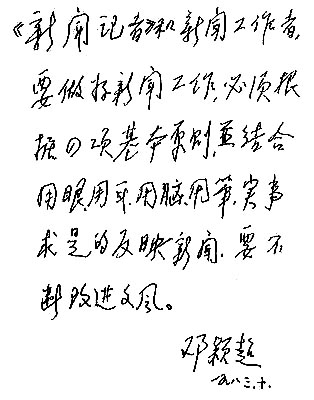 《新闻记者》和新闻工作者，
要做好新闻工作，必须根
据四项基本原则，并结合
用眼、用耳、用脑、用笔，实事
求是的反映新闻，要不
断改进文风。
邓颖超
一九八三.十.